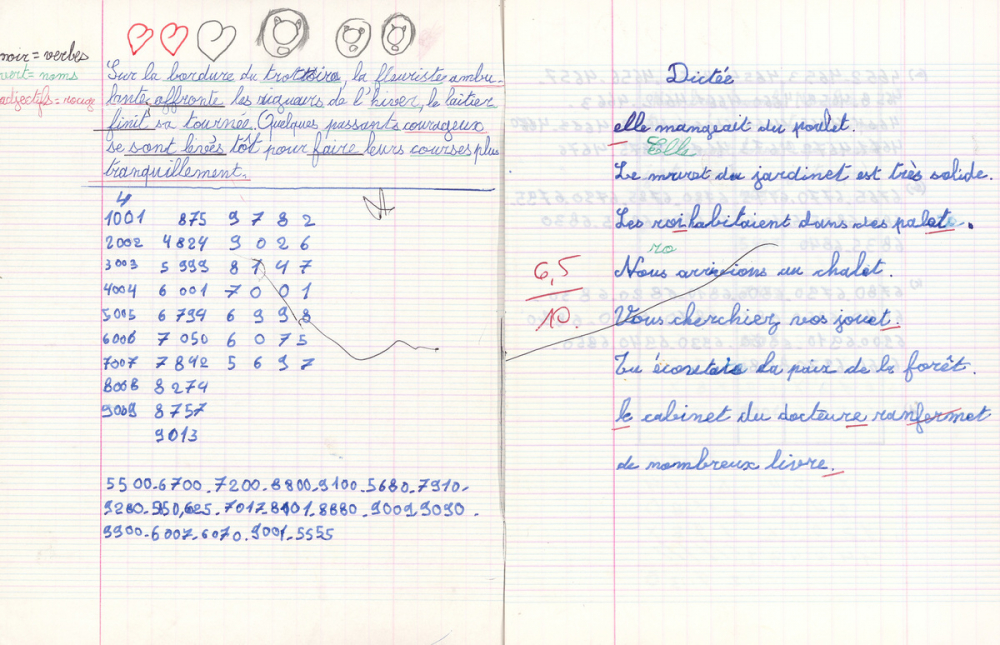 noir = verbes
vert = noms
adjectifs = rouge
Sur la bordure du trottoire, la fleuriste ambu-
lante affronte les rigueurs de l'hiver, le laitier
finit sa tournée. Quelques passants courageux
se sont levés tôt pour faire leurs courses plus
tranquillement.
4
1001 875 9 7 8 2
2002 4 824 9 0 2 6
3003 5 999 8 1 4 7
4004 6 001 7 0 0 1
5005 6 794 6 9 9 8
6006 7 050 6 0 7 5
7007 7 892 5 6 9 7
8008 8 274
9009 8 757
9013
5500-6700-7200-8800-9100-5680-7910-
9280-950,625-7017-8101-8880-9009-9090-
9900-6007-6070-9001-5555
Dictée
elle mangeait du poulet.
Elle
Le muret du jardinet est très solide.
Les roi habitaient dans ses palets.
ro
6,5
10
Nous arrivions au chalet.
Vous cherchiez vos jouet.
Tu écoutais la paix de la forêt.
le cabinet du docteure ranfermet
de nombreux livre.